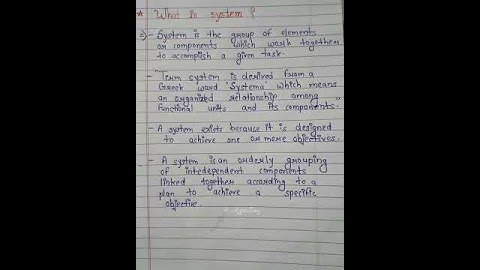 * What is system?
2)- System is the group of elements
or components which work together
to accomplish a given task.
- Term system is desired from a
Greek word 'Systema' which means
an organized relationship among
functional units and its components."
- A system exists because it is designed
to achieve one or more objectives.
- A system is an orderly grouping
of intedependent components
linked together according to a
plan to achieve a specific
objective.